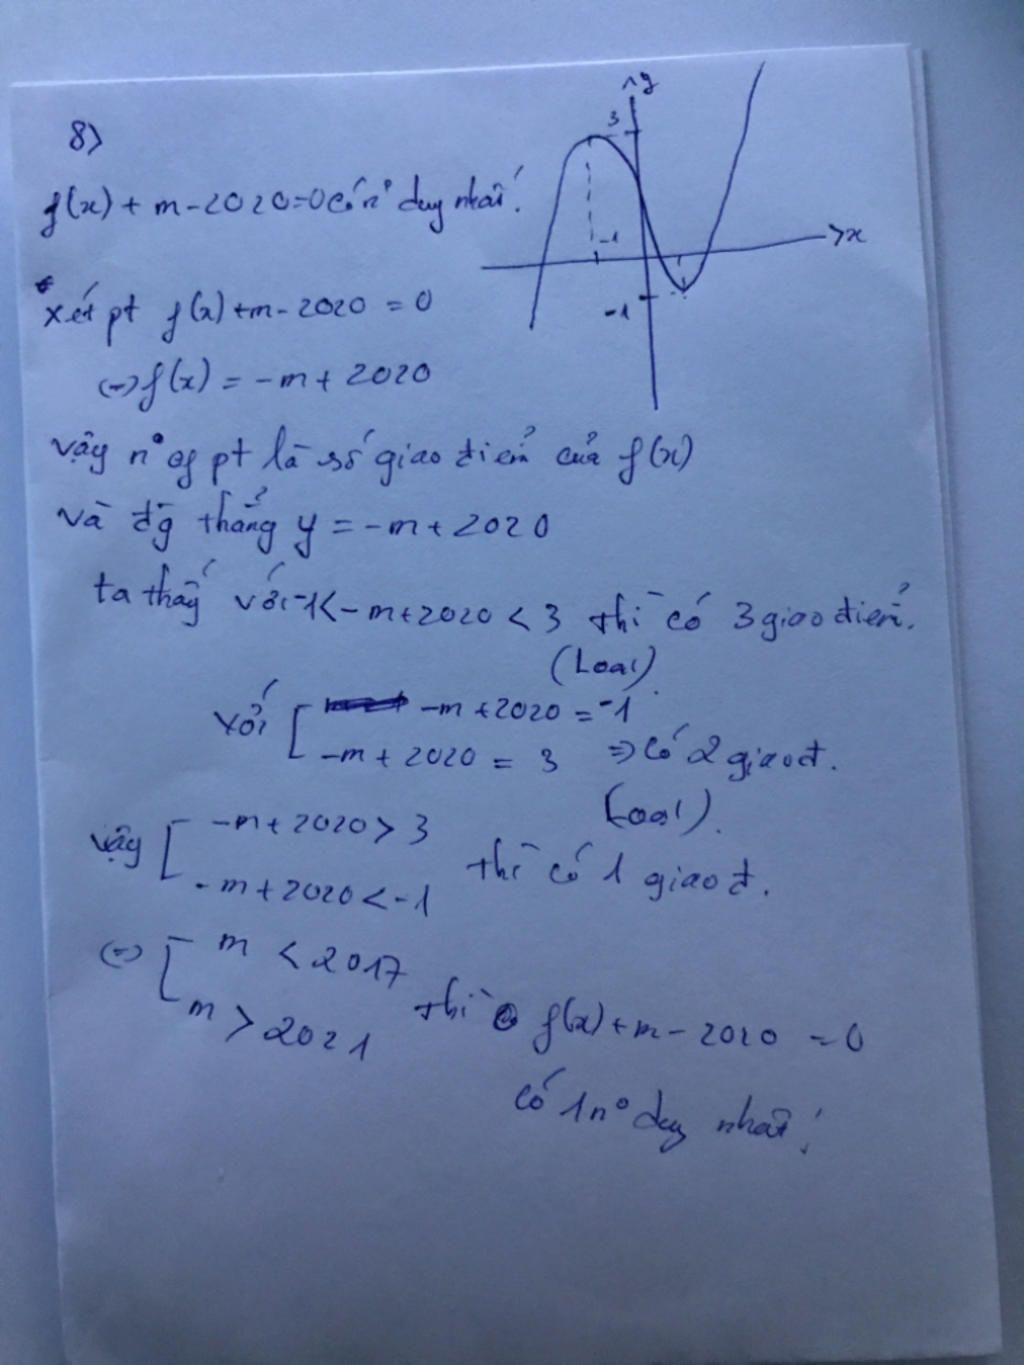 8>
f(x) + m - 2020 = 0 có n° duy nhất.
y
3
-1
x
-1
xét pt f(x) + m - 2020 = 0
<=> f(x) = -m + 2020
vậy n° of pt là số giao điểm của f(x)
và đg thẳng y = -m + 2020
ta thấy với -1 < -m + 2020 < 3 thì có 3 giao điểm.
(Loại).
với [ -m + 2020 = -1
-m + 2020 = 3 => có 2 giao đ.
(Loại).
vậy [ -m + 2020 > 3
-m + 2020 < -1 thì có 1 giao đ.
<=> [ m < 2017
m > 2021 thì f(x) + m - 2020 = 0
có 1 n° duy nhất.